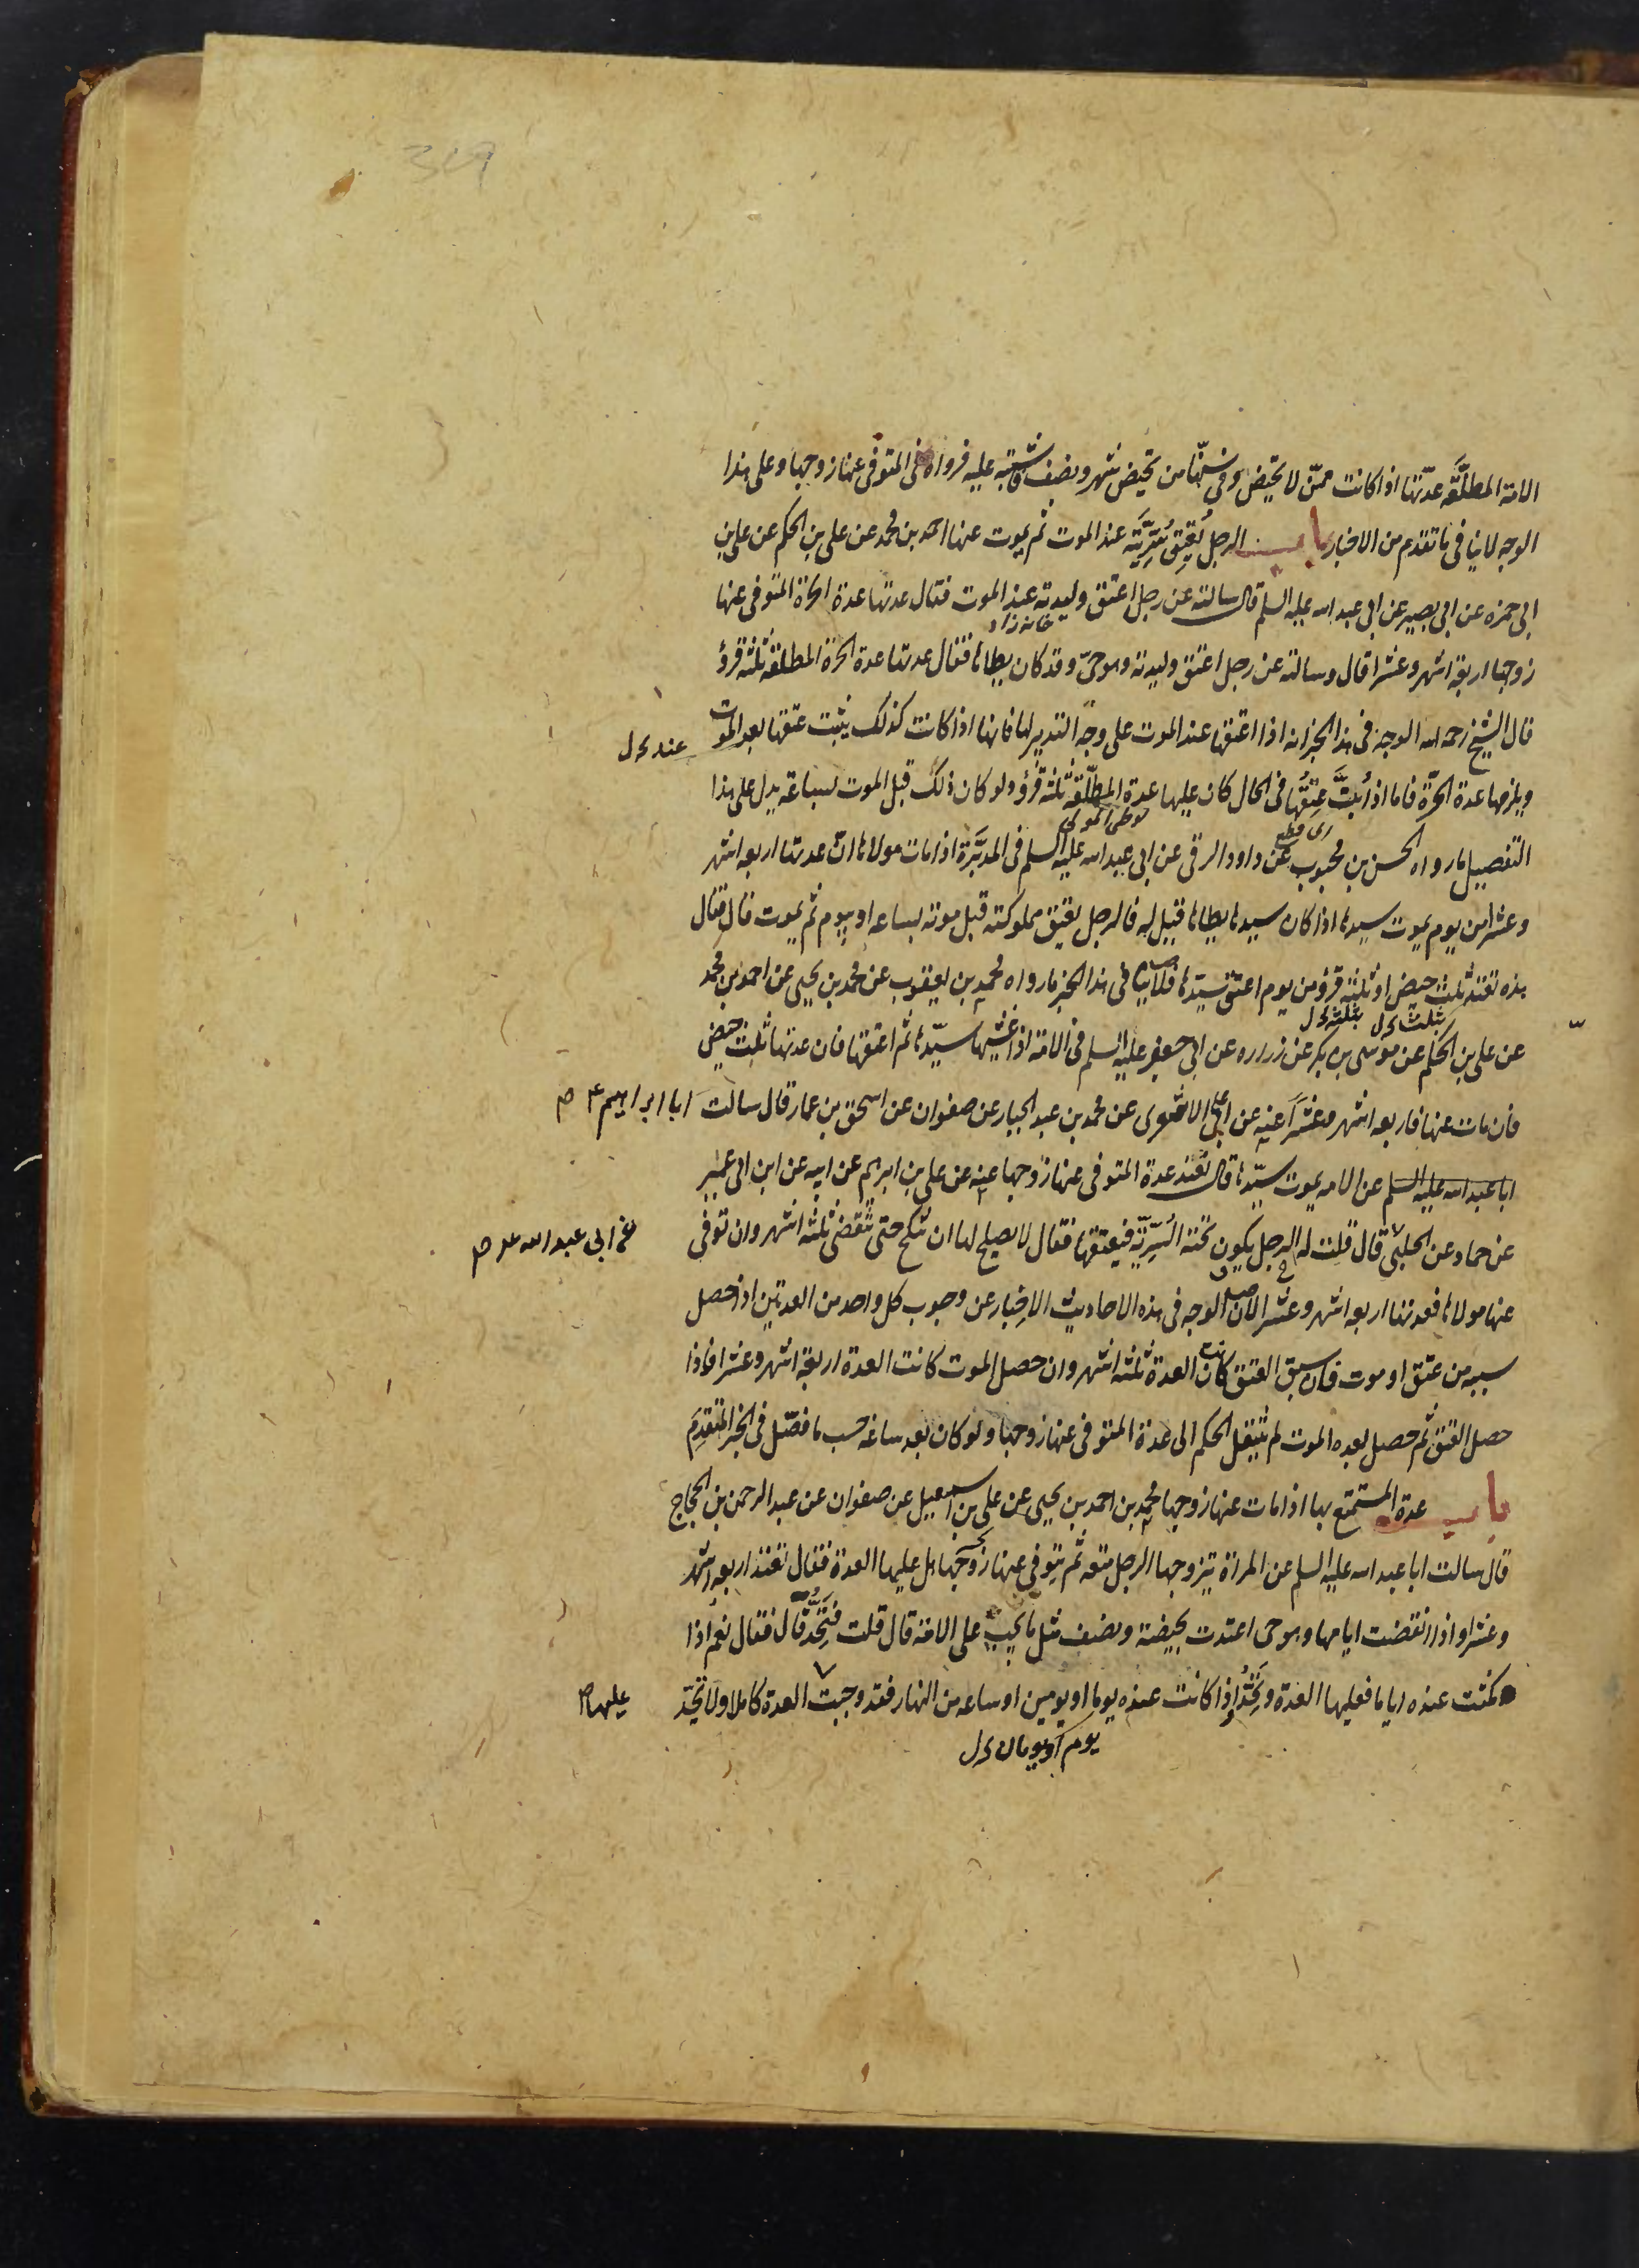 الامة المطلقة عدتها اذا كانت ممن لا تحيض وفي سنها من تحيض شهر ونصف فاشتبه عليه فرواه في المتوفى عنها زوجها وعلى هذا
الوجه لا ينافي ما تقدم من الاخبار باب الرجل يُعتِق سُرّيّته عند الموت ثم يموت عنها احمد بن محمد عن علي بن الحكم عن علي بن
ابي حمزه عن ابي بصير عن ابي عبد الله عليه السلم قال سالته عن رجل اعتق وليدته عند الموت فقال عدتها عدة الحرة المتوفى عنها
خانه زاد
زوجها اربعة اشهر وعشرا قال وسالته عن رجل اعتق وليدته وهو حيّ وقد كان يطاها فقال عدتها عدة الحرة المطلقة ثلثة قروؤ
قال الشيخ رحمه الله الوجه في هذا الخبر انه اذا اعتقها عند الموت على وجه التدبير لها فانها اذا كانت كذلك يثبت عتقها بعد الموت
عند
ويلزمها عدة الحرّة فاما اذا بُتَّ عِتقُها في الحال كان عليها عدة المطلّقة ثلثة قُرؤ ولو كان ذلك قبل الموت لساعة يدل على هذا
التفصيل ما رواه الحسن بن محبوب عن داود الرقى عن ابي عبد الله عليه السلم في المدبَّرة اذا مات مولاها ان عدتها اربعه اشهر
وعشرا من يوم يموت سيدها اذا كان سيدها يطاها قيل له فالرجل يعتق مملوكته قبل موته بساعه او بيوم ثم يموت قال فقال
هذه تعتد ثلث حيض او ثلثة قرؤ من يوم اعتق سيّدها فلا ينافي هذا الخبر ما رواه محمد بن يعقوب عن محمد بن يحيى عن احمد بن محمد
بثلث بثلثة
عن علي بن الحكم عن موسى بن بكر عن زراره عن ابي جعفر عليه السلم في الامة اذا غشيها سيّدها ثم اعتقها فان عدتها ثلث حيض
فان مات عنها فاربعه اشهر وعشرا عنه عن ابي علي الاشعرى عن محمد بن عبد الجبار عن صفوان عن اسحق بن عمار قال سالت
ابا ابراهيم ع
ابا عبد الله عليه السلم عن الامه يموت سيّدها قال تعتد عدة المتوفى عنها زوجها عنه عن علي بن ابرهيم عن ابيه عن ابن ابي عمير
عن حماد عن الحلبي قال قلت له الرجل يكون تحته السُرّيّة فيعتقها فقال لا يصلح لها ان تنكح حتى تنقضى ثلثه اشهر وان توفى
عن ابي عبد الله
عنها مولاها فعدتها اربعه اشهر وعشر لان الوجه في هذه الاحاديث الاخبار عن وجوب كل واحد من العدتين اذا حصل
سببه من عتق او موت فان سبق العتق كان العدة ثلثه اشهر وان حصل الموت كانت العدة اربعة اشهر وعشرا فاذا
حصل العتق ثم حصل بعده الموت لم ينتقل الحكم الى عدة المتوفى عنها زوجها ولو كان بعد ساعة حسب ما فصّل في الخبر المتقدم
باب عدة المستمتع بها اذا مات عنها زوجها محمد بن احمد بن يحيى عن علي بن اسمعيل عن صفوان عن عبد الرحمن بن الحجاج
قال سالت ابا عبد الله عليه السلم عن المراة يتزوجها الرجل متعه ثم يتوفى عنها زوجها هل عليها العدة فقال تعتد اربعه اشهر
وعشرا واذا انقضت ايامها وهو حى اعتدت بحيضة ونصف مثل ما يجب على الامة قال قلت فتحدّ قال فقال نعم اذا
مكثت عنده اياما فعليها العدة وتُحِدُّ واذا كانت عنده يوما او يومين او ساعه من النهار فقد وجبت العدة كاملا ولا تحدّ
عليها
يوم او يومان